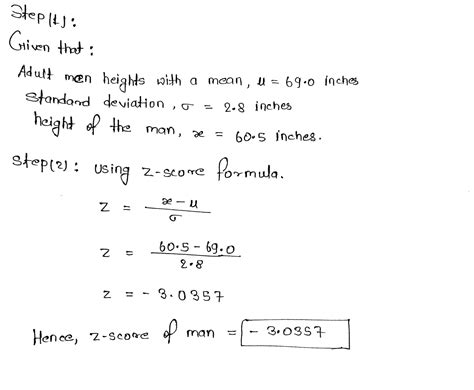 Step(1):
Given that :
Adult men heights with a mean, μ = 69.0 inches
standard deviation, σ = 2.8 inches
height of the man, x = 60.5 inches.
Step(2): using z-score formula.
z = x - μ / σ
z = 60.5 - 69.0 / 2.8
z = - 3.0357
Hence, z-score of man = - 3.0357